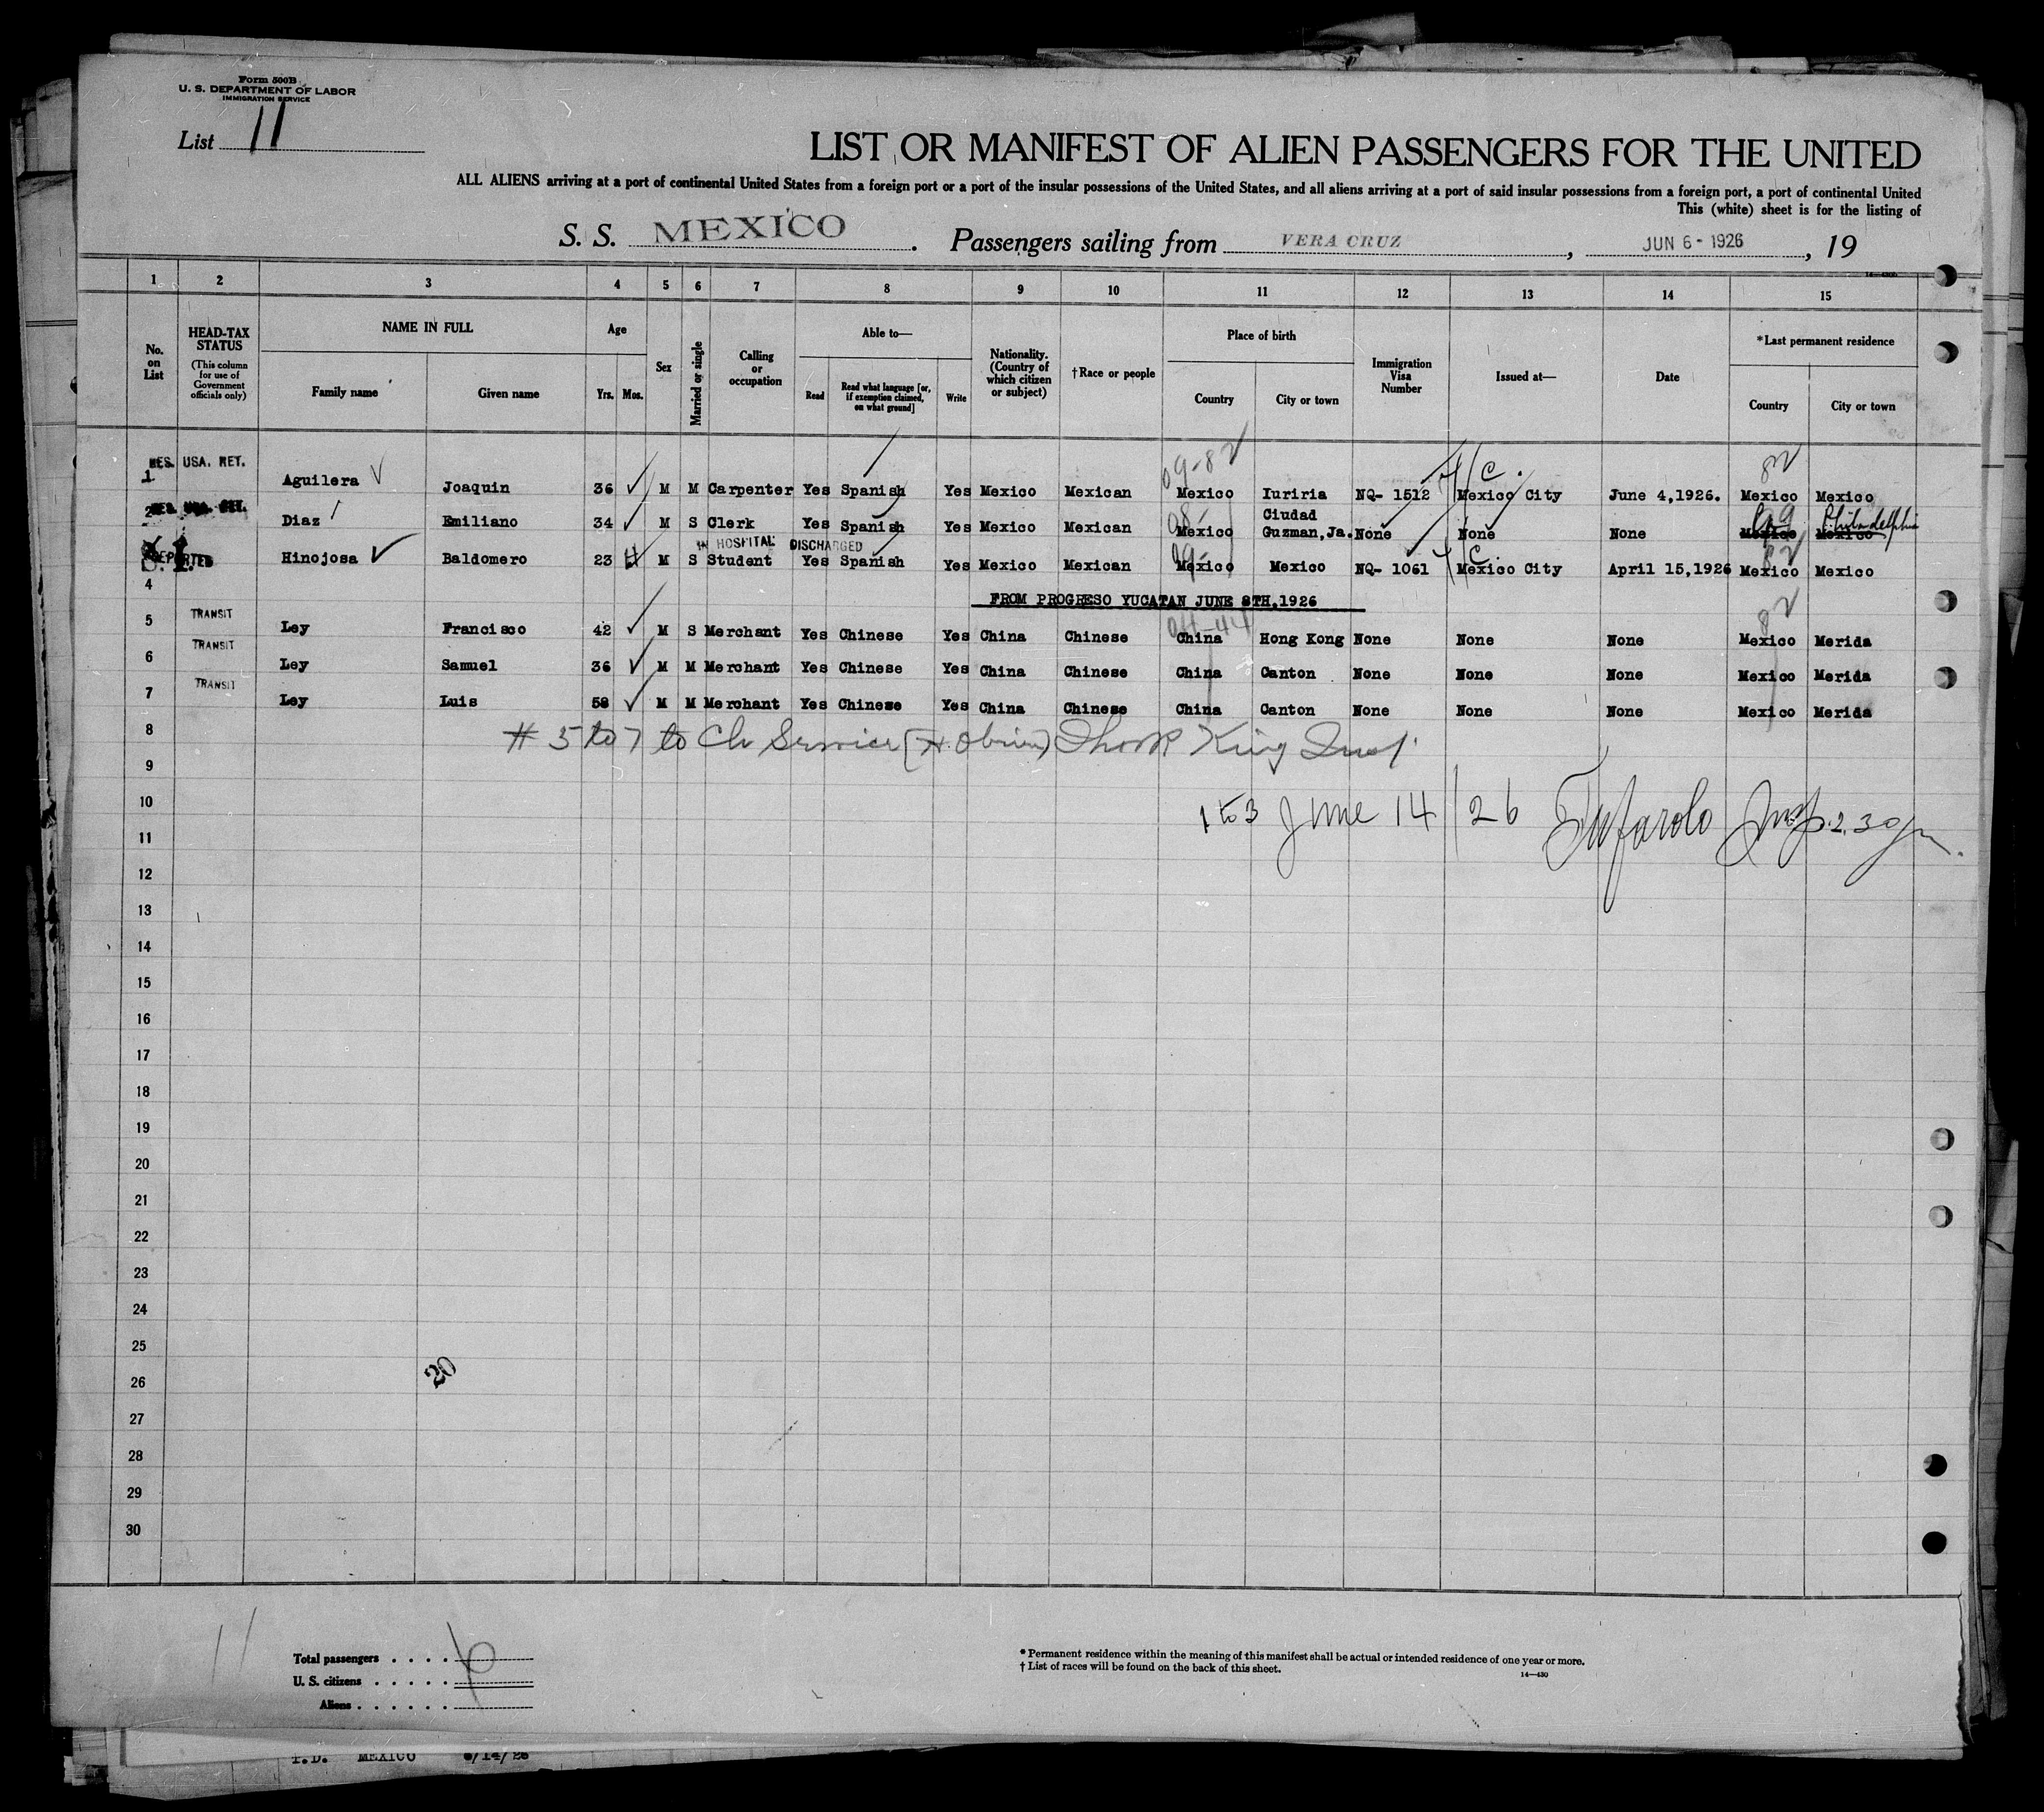 Form 500B
U. S. DEPARTMENT OF LABOR
IMMIGRATION SERVICE
List 11
LIST OR MANIFEST OF ALIEN PASSENGERS FOR THE UNITED
ALL ALIENS arriving at a port of continental United States from a foreign port or a port of the insular possessions of the United States, and all aliens arriving at a port of said insular possessions from a foreign port, a port of continental United
This (white) sheet is for the listing of
S. S. MEXICO . Passengers sailing from VERA CRUZ , JUN 6 - 1926 , 19
1 2 3 4 5 6 7 8 9 10 11 12 13 14 15
No. on List
HEAD-TAX STATUS
(This column for use of Government officials only)
NAME IN FULL
Family name
Given name
Age
Yrs.
Mos.
Sex
Married or single
Calling or occupation
Able to—
Read
Read what language [or, if exemption claimed, on what ground]
Write
Nationality. (Country of which citizen or subject)
†Race or people
Place of birth
Country
City or town
Immigration Visa Number
Issued at—
Date
*Last permanent residence
Country
City or town
RES. USA. RET.
09-82 C. 82
1 Aguilera Joaquin 36 M M Carpenter Yes Spanish Yes Mexico Mexican Mexico Iuriria NQ- 1512 Mexico City June 4,1926. Mexico Mexico
RES. USA. RET.
2 Diaz Emiliano 34 M S Clerk Yes Spanish Yes Mexico Mexican 08- Mexico Ciudad Guzman, Ja. None None None Mexico Mexico Philadelphia
IN HOSPITAL DISCHARGED
DEPORTED
Hinojosa Baldomero 23 M S Student Yes Spanish Yes Mexico Mexican 09- Mexico Mexico NQ- 1061 C. Mexico City April 15,1926 82 Mexico Mexico
4 FROM PROGRESO YUCATAN JUNE 8TH,1926
5 TRANSIT Ley Francisco 42 M S Merchant Yes Chinese Yes China Chinese 04-44 China Hong Kong None None None 82 Mexico Merida
6 TRANSIT Ley Samuel 36 M M Merchant Yes Chinese Yes China Chinese China Canton None None None Mexico Merida
7 TRANSIT Ley Luis 58 M M Merchant Yes Chinese Yes China Chinese China Canton None None None Mexico Merida
8 # 5 to 7 to Ch Service (H. Obrien) King Insp.
9
10 1 to 3 June 14/26 Tufarolo Insp. 2.30 pm.
11
12
13
14
15
16
17
18
19
20
21
22
23
24
25
26 20
27
28
29
30
11
Total passengers . . . . 6
U. S. citizens . . . . .
Aliens . . . . . .
* Permanent residence within the meaning of this manifest shall be actual or intended residence of one year or more.
† List of races will be found on the back of this sheet.
14—430
MEXICO 6/14/26